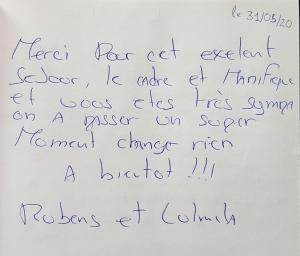 le 31/05/20
Merci Pour cet exelent
Sejour, le cadre et Manifique
et vous etes très sympa
on A passer un super
Moment changer rien
A bientot !!!
Rubens et Lulmila